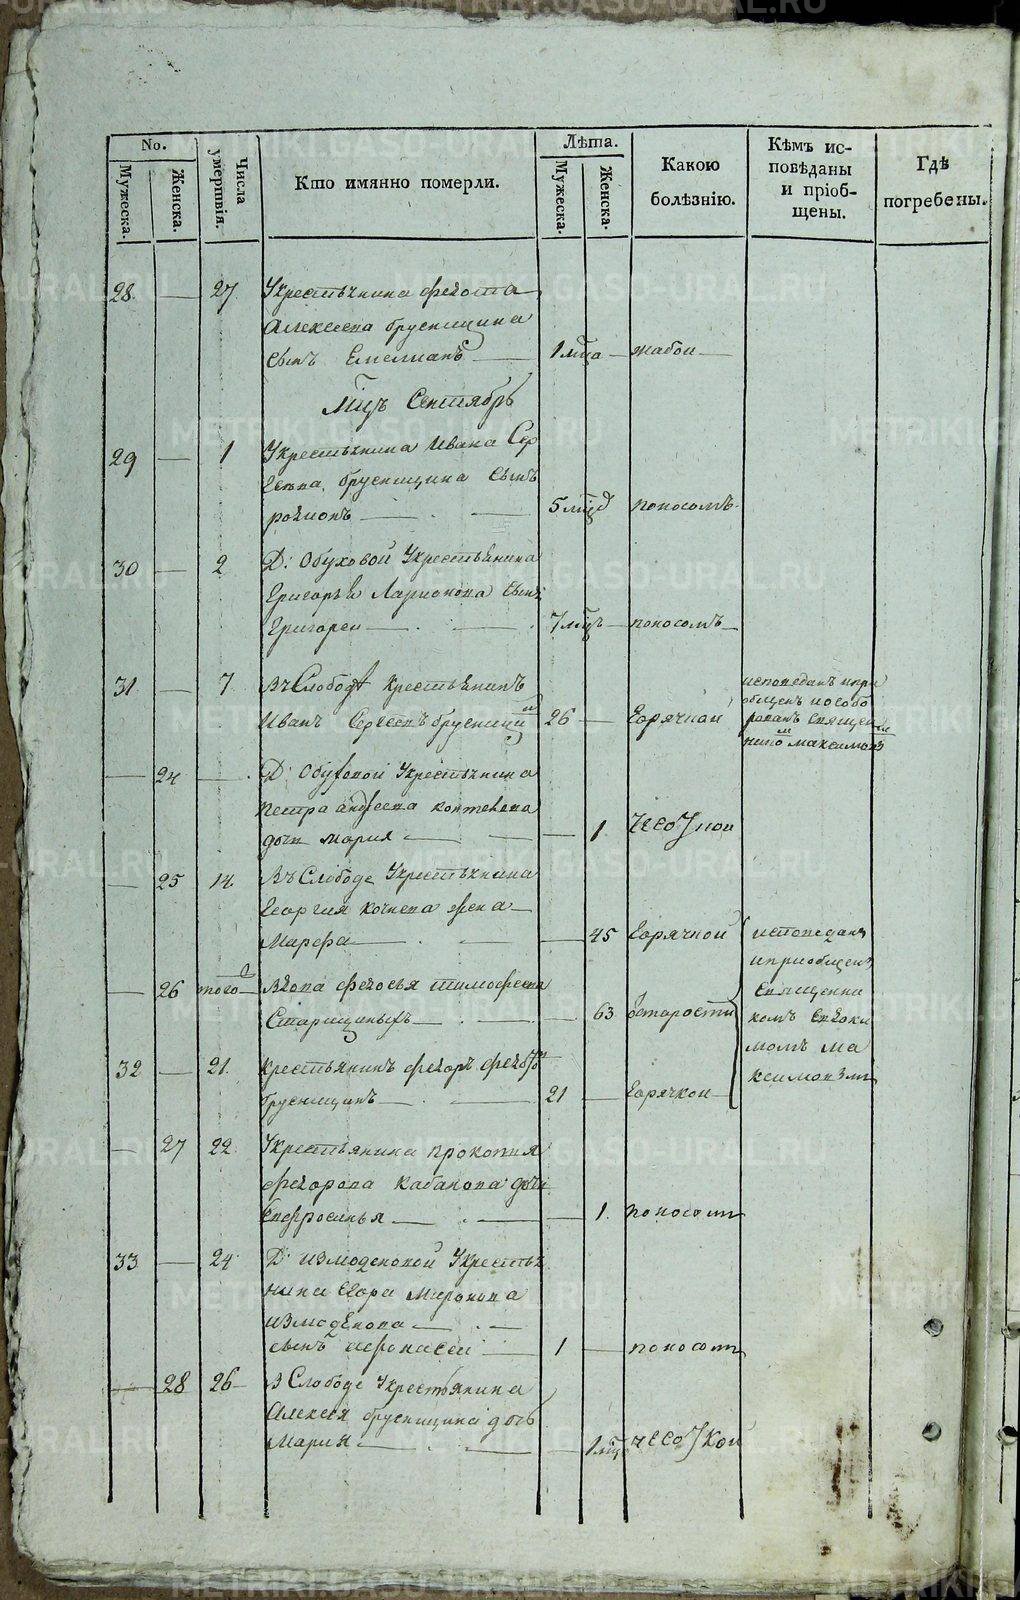 METRIKI.GASO-URAL.RU
No.
Мужеска.
Женска.
Числа умертвія.
Кто имянно померли.
Лѣта.
Мужеска.
Женска.
Какою болѣзнію.
Кѣмъ ис-
повѣданы
и пріоб-
щены.
Гдѣ
погребены.
28. — 27 Укрестьянина федота
Алексеева брусницина
сынъ Емелианъ — 1 мца — жабои
Мцъ Сентябрь
29 — 1 Укрестьянина Ивана Сер
геева брусницина сынъ
родионъ — 5 мцъ поносомъ
30 — 2 Д: Обуховой Укрестьянина
Григорья Ларионова сынъ
Григореи — 7 мцъ — поносомъ
31 — 7 въ Слободѣ крестьянинъ
Иванъ Сергеевъ брусницинъ 26 — Горячкой
исповеданъ и при
общенъ иособо
рованъ священ
никомъ Максимовым
— 24 — Д: Обуховой Укрестьянина
Петра андреева коптевева
дочь Мария — 1 чесоткои
— 25 14 въ Слободе Укрестьянина
Георгия кочнева жена
Марфа — 45 Горячкой
исповеданы
и приобщены
священни
комъ Евдоки
момъ Ма
ксимовым
— 26 того вдова федосья тимофеева
Старицыныхъ — 63 отстарости
32 — 21 крестьянинъ федоръ федотовъ
брусницинъ — 21 — Горячкои
— 27 22 Укрестьянина прокопия
федорова кабакова дочь
Евфросинья — 1. поносомъ
33 — 24 Д: измоденовой Укрестья
нина Егора Миронова
измоденова
сынъ афонасеи 1 — поносомъ
— 28 26 в Слободе Укрестьянина
Алексея брусницина дочь
Мария — 1 мцъ чесоткой